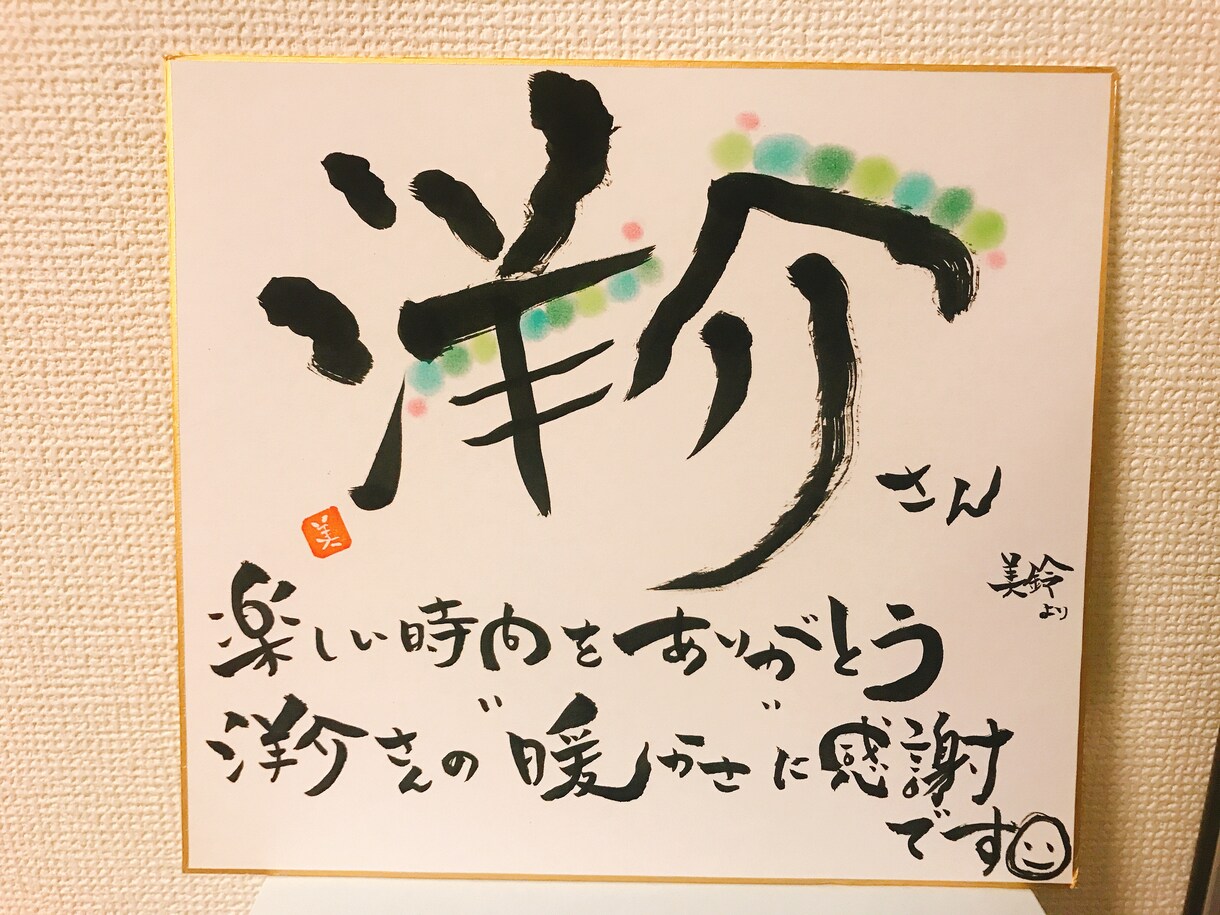 洋介
さん
美鈴
より
美
楽しい時間をありがとう
洋介さんの"暖かさ"に感謝
です